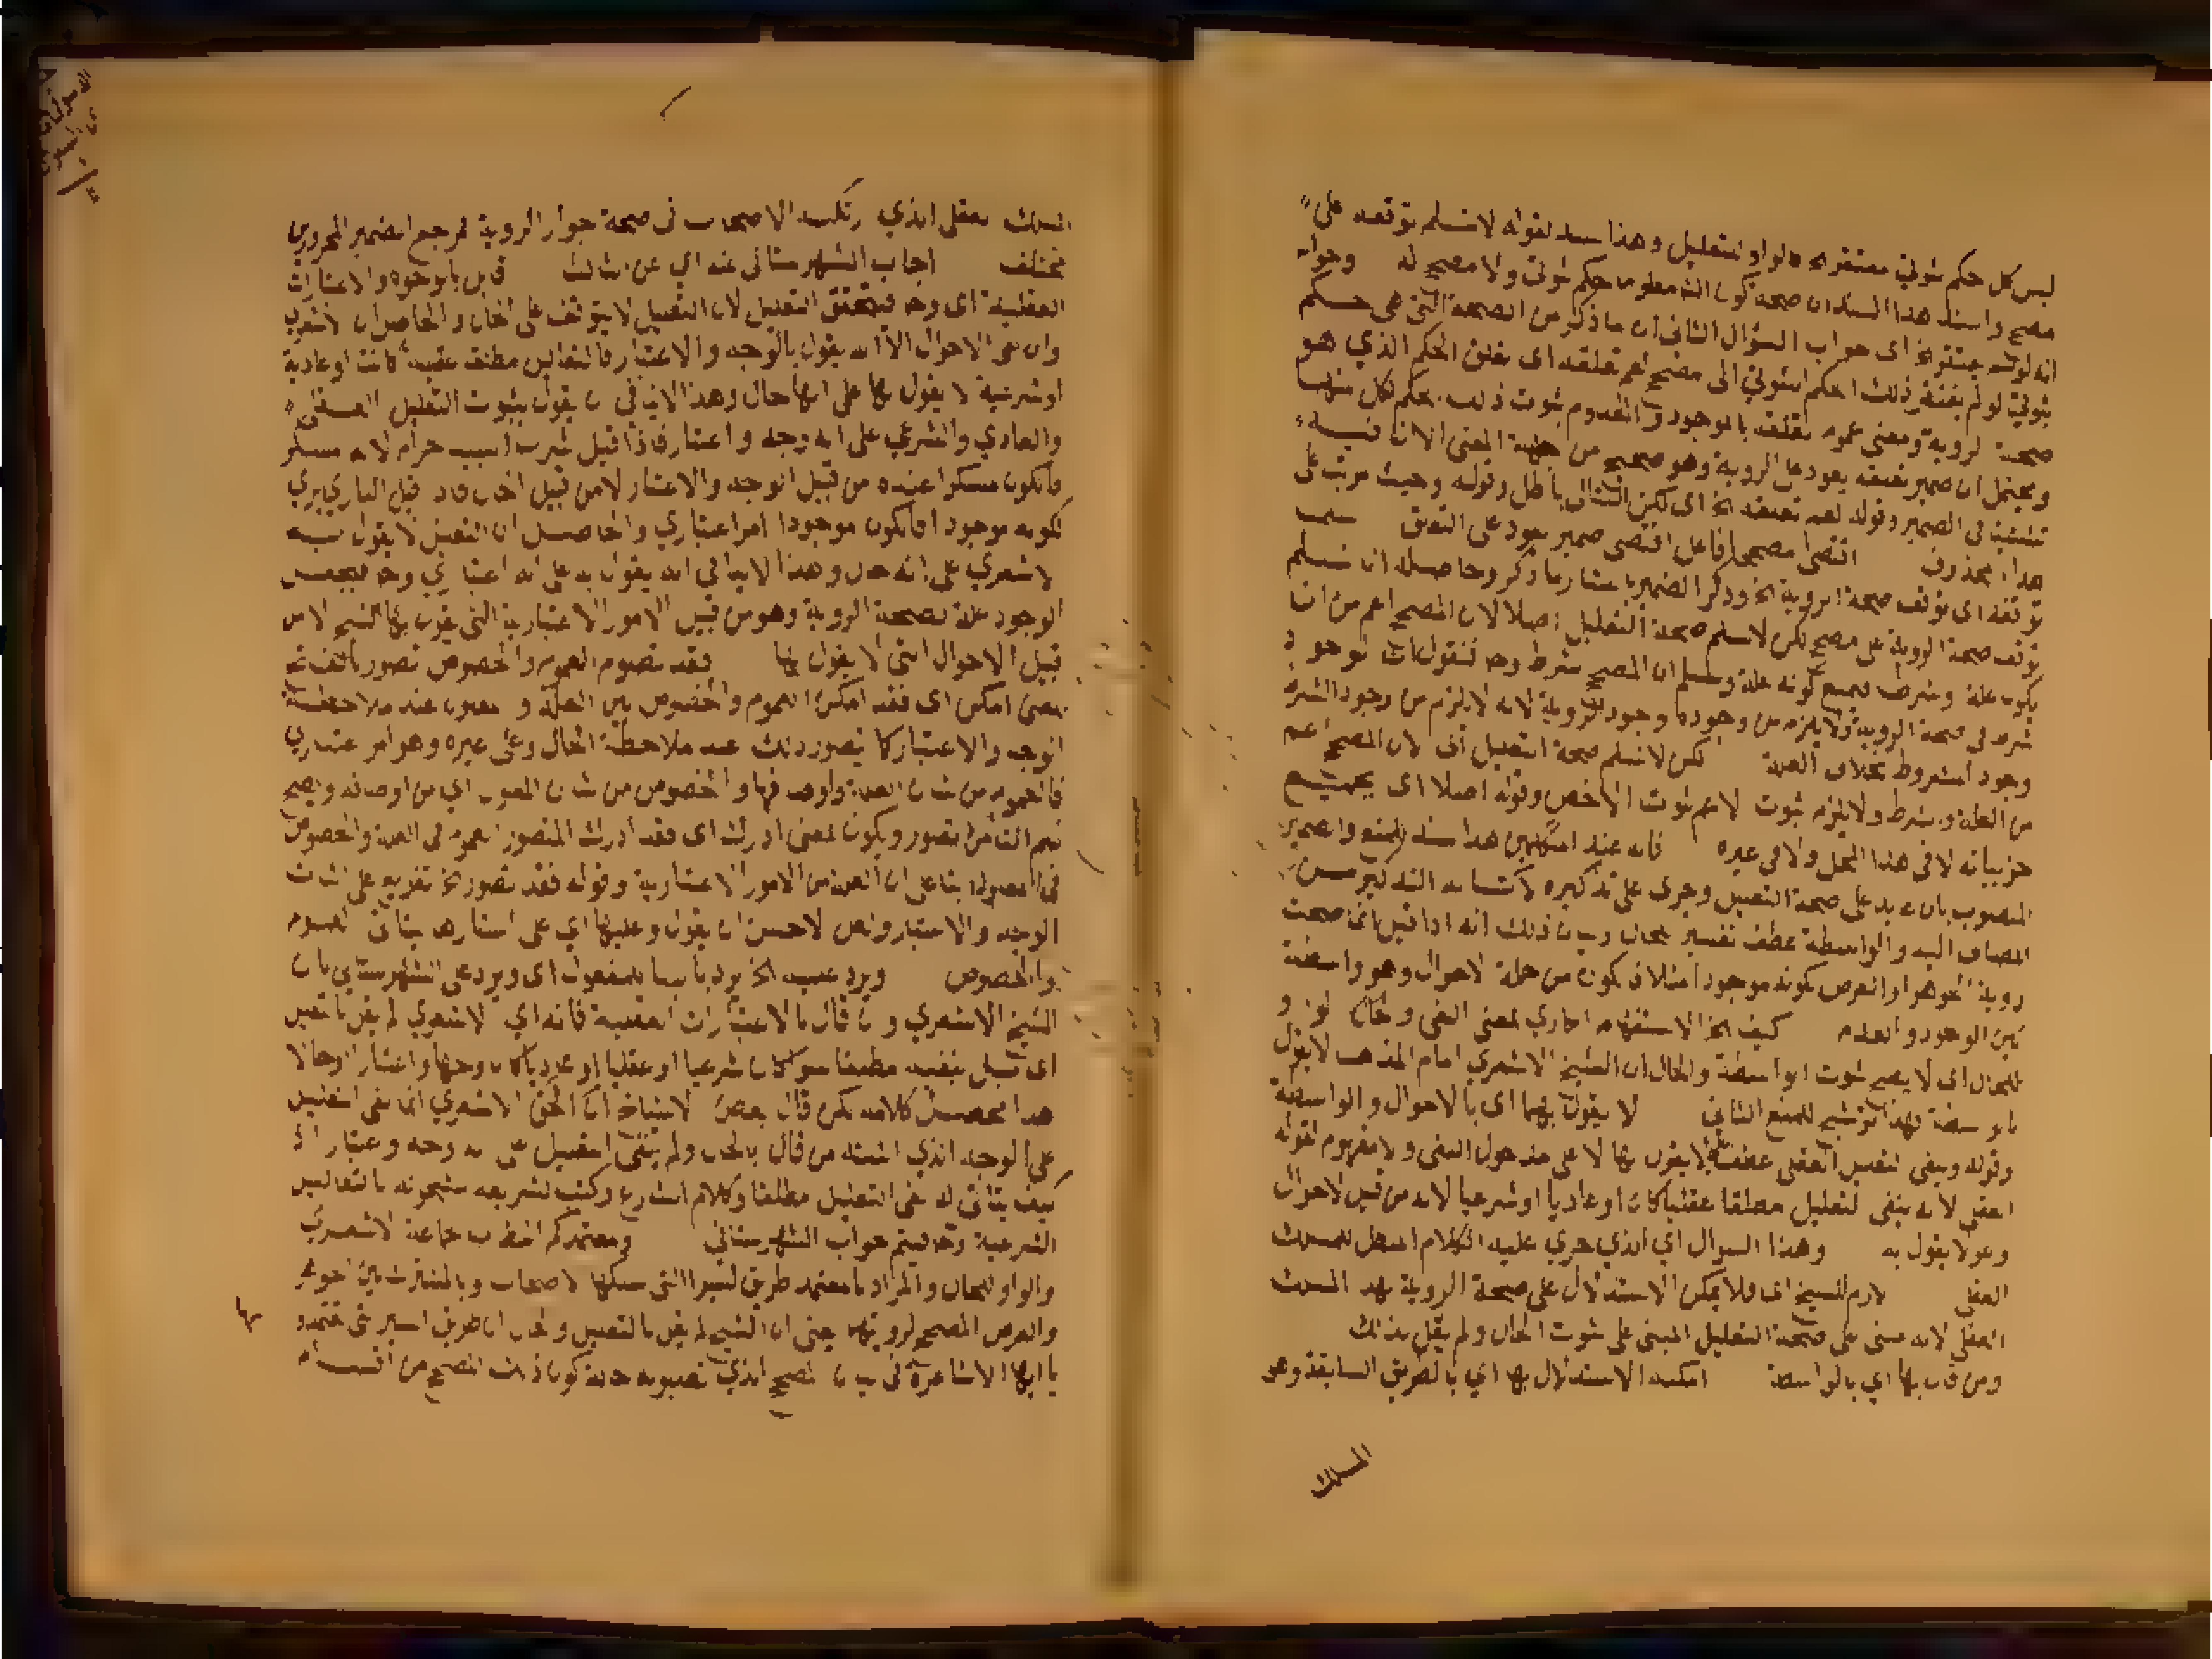 ليس كل حكم ثبوتي مفتقر الخ الواو للتعليل وهذا سند لقوله لا نسلم توقفه على
مصحح واسناد هذا السند ان صحة كون الشئ معلوما حكم ثبوتي ولا مصحح له وجوابه
انه لو لم يفتقر الخ اى جواب السؤال الثانى ان ما ذكر من الصحة التى هى حكم
ثبوتي لو لم يفتقر ذلك الحكم الثبوتي الى مصحح لعم تعلقه اى تعلق الحكم الذي هو
صحة الروية ومعنى عموم تعلقه بالموجود والمعدوم ثبوت ذلك الحكم لكل منهما
ويحتمل ان ضمير تعلقه يعود على الروية وهو صحيح من جهة المعنى الا ان فيه
تشتيتا فى الضمير وقوله لعم تعلقه الخ اى لكن التالى باطل وقوله وحيث مرتب على
هذا المحذوف اقتضى مصححا فاعل اقتضى ضمير يعود على التعلق سلمنا
توقفه اى توقف صحة الروية الخ وذكر الضمير باعتبار ما ذكر وحاصله انا نسلم
توقف صحة الروية على مصحح لكن لا نسلم صحة التعليل اصلا لان المصحح اعم من ان
يكون علة وشرطا فيمنع كونه علة ونسلم ان المصحح شرط وح فنقول ان الوجود
شرط فى صحة الروية ولا يلزم من وجوده وجود الروية لانه لا يلزم من وجود الشرط
وجود المشروط بخلاف العلة لكن لا نسلم صحة التعليل اى لان المصحح اعم
من العلة والشرط ولا يلزم ثبوت الاعم ثبوت الاخص وقوله اصلا اى بجميع
جزيياته لا فى هذا المحل ولا فى غيره فانه عند المتكلمين هذا سند للمنع والضمير
المنصوب بان عايد على صحة التعليل وجرى على تذكيره لاكتسابه التذكير من
المضاف اليه والواسطة عطف تفسير للحال وبيان ذلك انه اذا قيل انما صحت
روية الجوهر او العرض لكونه موجودا مثلا فكونه من جملة الاحوال وهو واسطة
بين الوجود والعدم كيف الخ الاستفهام انكاري بمعنى النفى وحال الواو
للحال اى لا يصح ثبوت الواسطة والحال ان الشيخ الاشعري امام المذهب لا يقول
بالواسطة فهذا ترشيح للمنع الثانى لا يقول بهما اى بالاحوال والواسطة
وقوله وينفى التعليل العقلى عطف على لا يقول بها لا على مدخول النفى ولا مفهوم لقوله
العقلى لانه ينفى التعليل مطلقا عقليا كان او عاديا او شرعيا لانه من قبيل الاحوال
وهو لا يقول به وهذا السوال اى الذي جري عليه الكلام المبطل للمسلك
العقلى لازم للشيخ اى فلا يمكن الاستدلال على صحة الروية بهذا المسلك
العقلى لانه مبنى على صحة التعليل المبنى على ثبوت الحال ولم يقل بذلك
ومن قال بها اي بالواسطة امكنه الاستدلال بها اي بالطريق السابقة وهو
المسلك
المسلك العقلى الذي ارتكبه الاصحاب فى صحة جواز الروية فمرجع الضمير المجرور
مختلف اجاب الشهرستانى عنه اي عن الثالث قايل بالوجوه والاعتبارات
العقلية اى وح فيتحقق التعليل لان التعليل لا يتوقف على الحال والحاصل ان الاشعري
وان نفى الاحوال الا انه يقول بالوجه والاعتبار فالتعاليل مطلقا عقلية كانت او عادية
او شرعية لا يقول بها على انها حال وهذا لا ينافي ان يقول بثبوت التعليل العقلى
والعادي والشرعي على انه وجه واعتبار فاذا قيل شرب النبيذ حرام لانه مسكر
فالكون مسكرا عنده من قبيل الوجه والاعتبار لا من قبيل الحال فاذ قيل الباري يرى
لكونه موجودا فالكون موجودا امر اعتباري والحاصل ان التعليل لا يقول به
الاشعري على انه حال وهذا لا ينافي انه يقول به على انه اعتباري وح فيجعل
الوجود علة لصحة الروية وهو من قبيل الامور الاعتبارية التى يقول بها الشيخ لا من
قبيل الاحوال التى لا يقول بها فقد تصوم العموم والخصوص تصور بالف
بمعنى امكن اى فقد امكن العموم والخصوص بين العلة والمعلول عند ملاحظة
الوجه والاعتبار كما تصور ذلك عند ملاحظة الحال وعلى غيره وهو امر اعتباري
فالعموم من شان العلة واوصافها والخصوص من شان المعلول اي من اوصافه ويصح
ضم التا من تصور ويكون بمعنى ادرك اى فقد ادرك المتصور العموم فى العلة والخصوص
فى المعلول بنا على ان العلة من الامور الاعتبارية وقوله فقد تصور الخ تفريع على اثبات
الوجه والاعتبار ولعل الاحسن ان يقول وعليها اي على اعتبارها يتاتى العموم
والخصوص ويرد عليه الخ يرد بالبنا للمفعول اى ويرد على الشهرستانى بان
الشيخ الاشعري وان قال بالاعتبارات العقلية فانه اي الاشعري لم يقل بالتعليل
اى قبل بنفيه مطلقا سوا كان شرعيا او عقليا او عاديا كان وجها واعتبارا او حالا
هذا محصل كلامه لكن قال بعض الاشياخ ان الحق الاشعري انما نفى التعليل
على الوجه الذي اثبته من قال بالحال ولم ينفى التعليل على انه وجه واعتبار اذ
كيف يتاتى له نفى التعليل مطلقا وكلام الشارع وكتب الشريعة مشحونة بالتعاليل
الشرعية وح فيتم جواب الشهرستانى ومعتمدكم الخطاب لجماعة الاشعري
والواو للحال والمراد بالمعتمد طريق السبر التى سلكها الاصحاب وبالمشترك بين الجوهر
والعرض المصحح لرويتهما يعنى ان الشيخ لم يقل بالتعليل والحال ان طريق السبر التى
يا ايها الاشاعرة فى بيان المصحح الذي تطلبونه حالة كون ذلك المصحح من اقسام